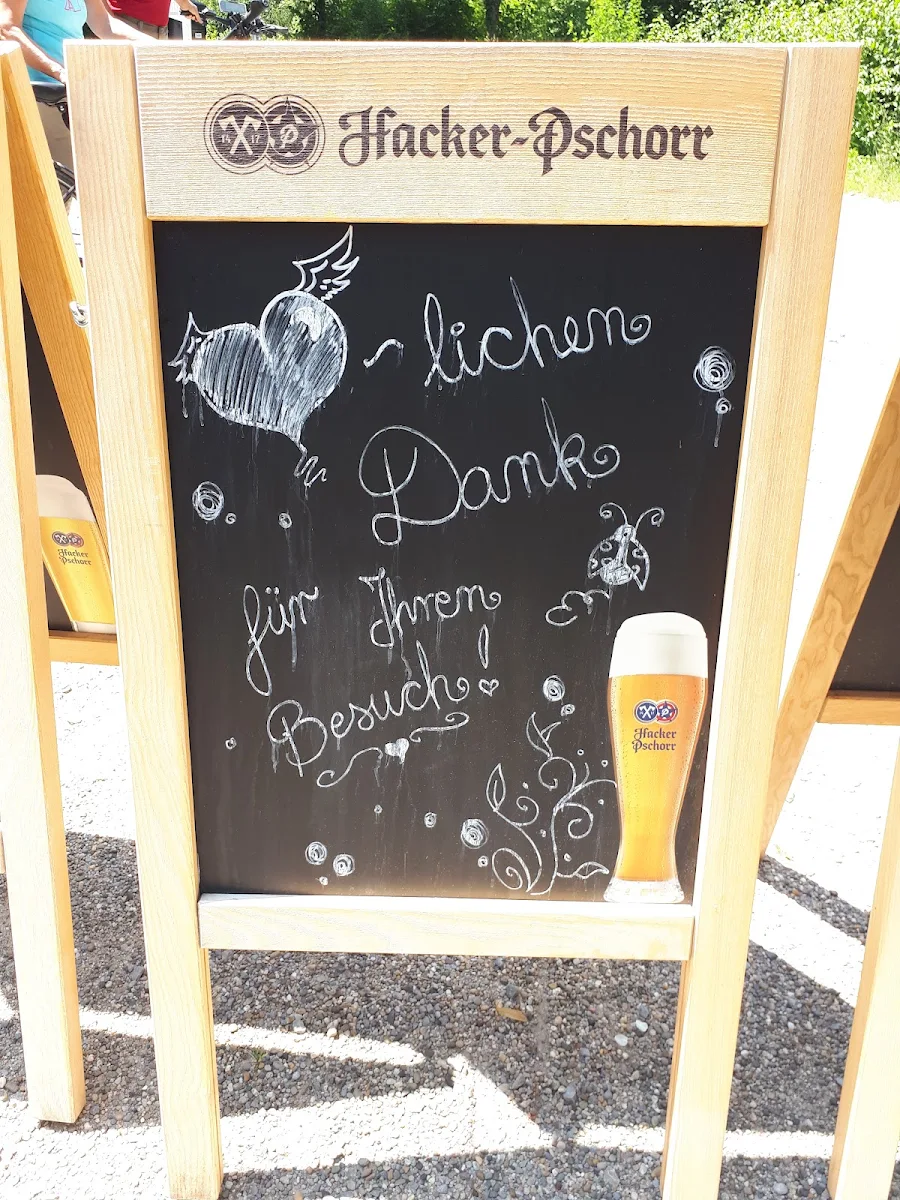 Hacker-Pschorr
~lichen
Dank
für Ihren
Besuch!
Hacker
Pschorr
Hacker
Pschorr